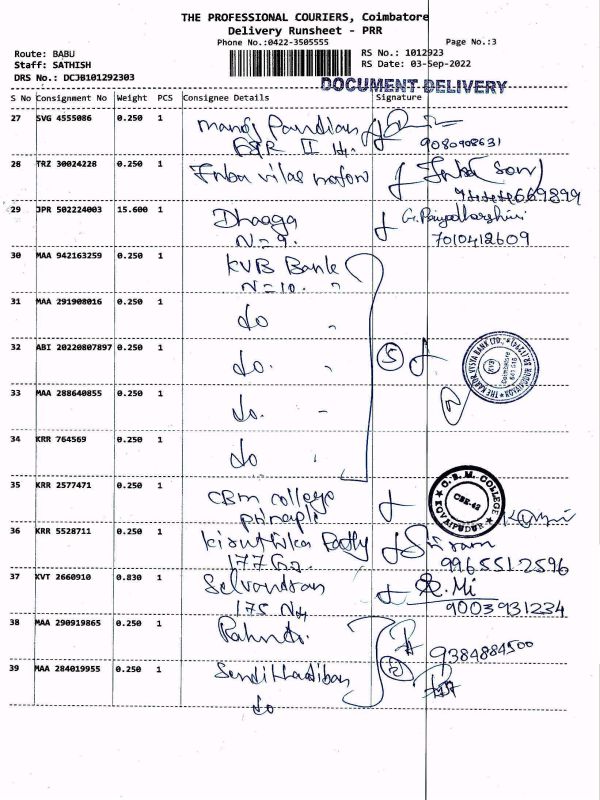 THE PROFESSIONAL COURIERS, Coimbatore
Delivery Runsheet - PRR
Phone No.:0422-3505555
Page No.:3
Route: BABU
RS No.: 1012923
Staff: SATHISH
RS Date: 03-Sep-2022
DRS No.: DCJB101292303
DOCUMENT DELIVERY
S No Consignment No Weight PCS Consignee Details Signature
27 SVG 4555086 0.250 1 Manoj Pandian
9080908631
28 TRZ 30024228 0.250 1
669899
29 JPR 502224003 15.600 1 Dhaaga G. Priyadharshini
N=9. 7010412609
30 MAA 942163259 0.250 1 KVB Bank
N=10. "
31 MAA 291908016 0.250 1 do "
32 ABI 20220807897 0.250 1 do. " 5
THE KARUR VYSYA BANK LTD.,
KVB
Coimbatore
33 MAA 288640855 0.250 1 do. "
34 KRR 764569 0.250 1 do "
35 KRR 2577471 0.250 1 CBM College
C.B.M. COLLEGE
CBE-42
KOVAIPUDUR
36 KRR 5528711 0.250 1 Sriram
9965512596
37 KVT 2660910 0.830 1 R. Mi
9003931234
38 MAA 290919865 0.250 1
9384884500
39 MAA 284019955 0.250 1
do